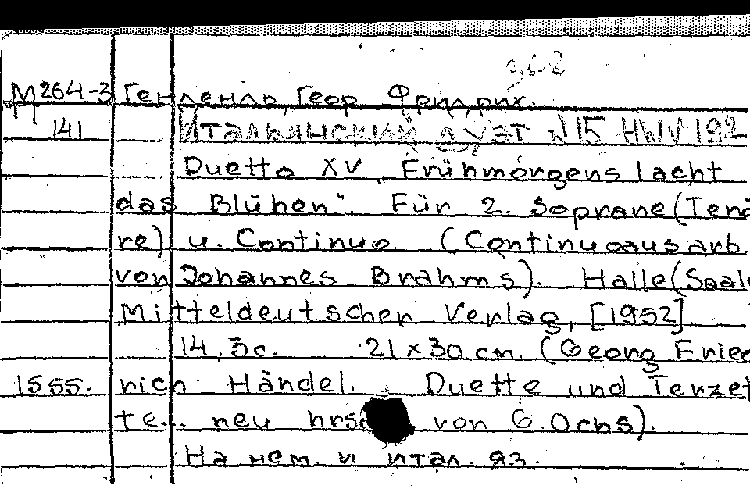 М264-3 Гендель, Геор Фридрих.
141 Итальянский дуэт N15 HWV 192
Duetto XV „Frühmorgens lacht
das Blühen". Für 2. Soprane (Tenö
re) u. Continuo (Continuoausarb
von Johannes Brahms). Halle (Saale
Mitteldeutscher Verlag, [1952]
14, 3с. 21 x 30 cm. (Georg Fried
1555. rich Händel. Duette und Terzet
te.. neu hrsg von G. Ochs).
На нем. и итал. яз.